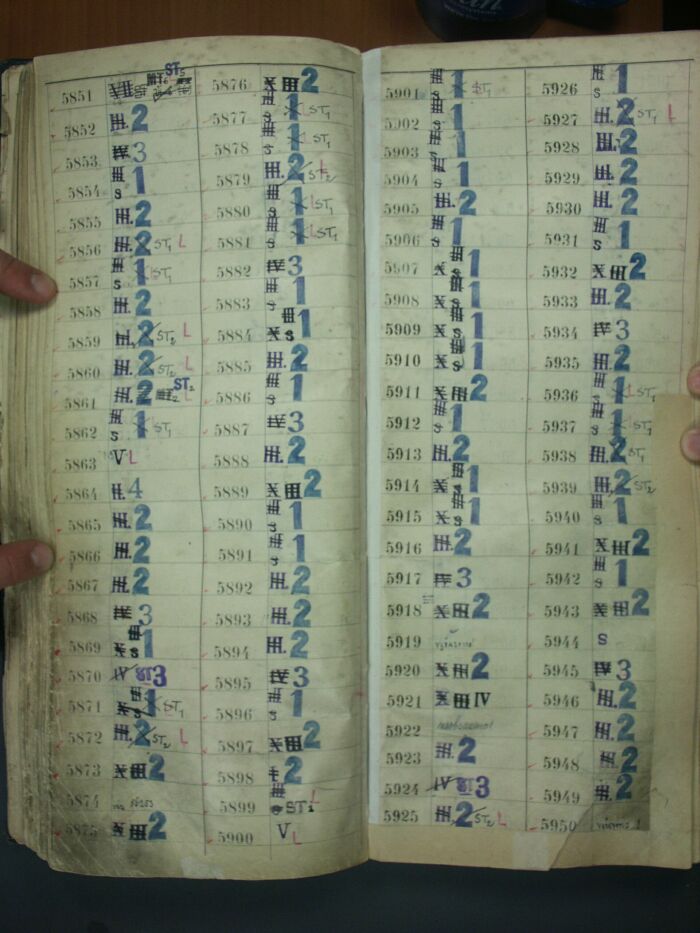 5851 ST5
5852 III. 2
5853 IV 3
5854 III S 1
5855 III. 2
5856 III. 2 ST1 L
5857 III S 1 ST1
5858 III. 2
5859 III. 2 ST2 L
5860 III. 2 ST2 L
5861 III. 2 ST2 L
5862 III S 1 ST1
5863 V L
5864 II. 4
5865 III. 2
5866 III. 2
5867 III. 2
5868 IV 3
5869 X III S 1
5870 IV 3
5871 X III S 1 ST1
5872 III. 2 ST2 L
5873 X III 2
5874
5875 X III 2
5876 X III 2
5877 III S 1 ST1
5878 III S 1 ST1
5879 III. 2 ST2 L
5880 III S 1 L ST1
5881 III S 1 L ST1
5882 IV 3
5883 III S 1
5884 X III S 1
5885 III. 2
5886 III S 1
5887 IV 3
5888 III. 2
5889 X III 2
5890 III S 1
5891 III S 1
5892 III. 2
5893 III. 2
5894 III. 2
5895 IV 3
5896 III S 1
5897 X III 2
5898 2
5899 III ST1 L
5900 V L
5901 III S 1 ST1
5902 III S 1
5903 III S 1
5904 III S 1
5905 III. 2
5906 III S 1
5907 X III S 1
5908 X III S 1
5909 X III S 1
5910 X III S 1
5911 X III 2
5912 III S 1
5913 III. 2
5914 X III S 1
5915 X III S 1
5916 III. 2
5917 IV 3
5918 X III 2
5919
5920 X III 2
5921 X III IV
5922
5923 III. 2
5924 IV 3
5925 III. 2 ST2 L
5926 III S 1
5927 III. 2 ST1 L
5928 III. 2
5929 III. 2
5930 III. 2
5931 III S 1
5932 X III 2
5933 III. 2
5934 IV 3
5935 III. 2
5936 III S 1 L ST1
5937 III S 1 L ST1
5938 III. 2 ST1
5939 III. 2 ST2
5940 III S 1
5941 X III 2
5942 III S 1
5943 X III 2
5944 S
5945 IV 3
5946 III. 2
5947 III. 2
5948 III. 2
5949 III. 2
5950